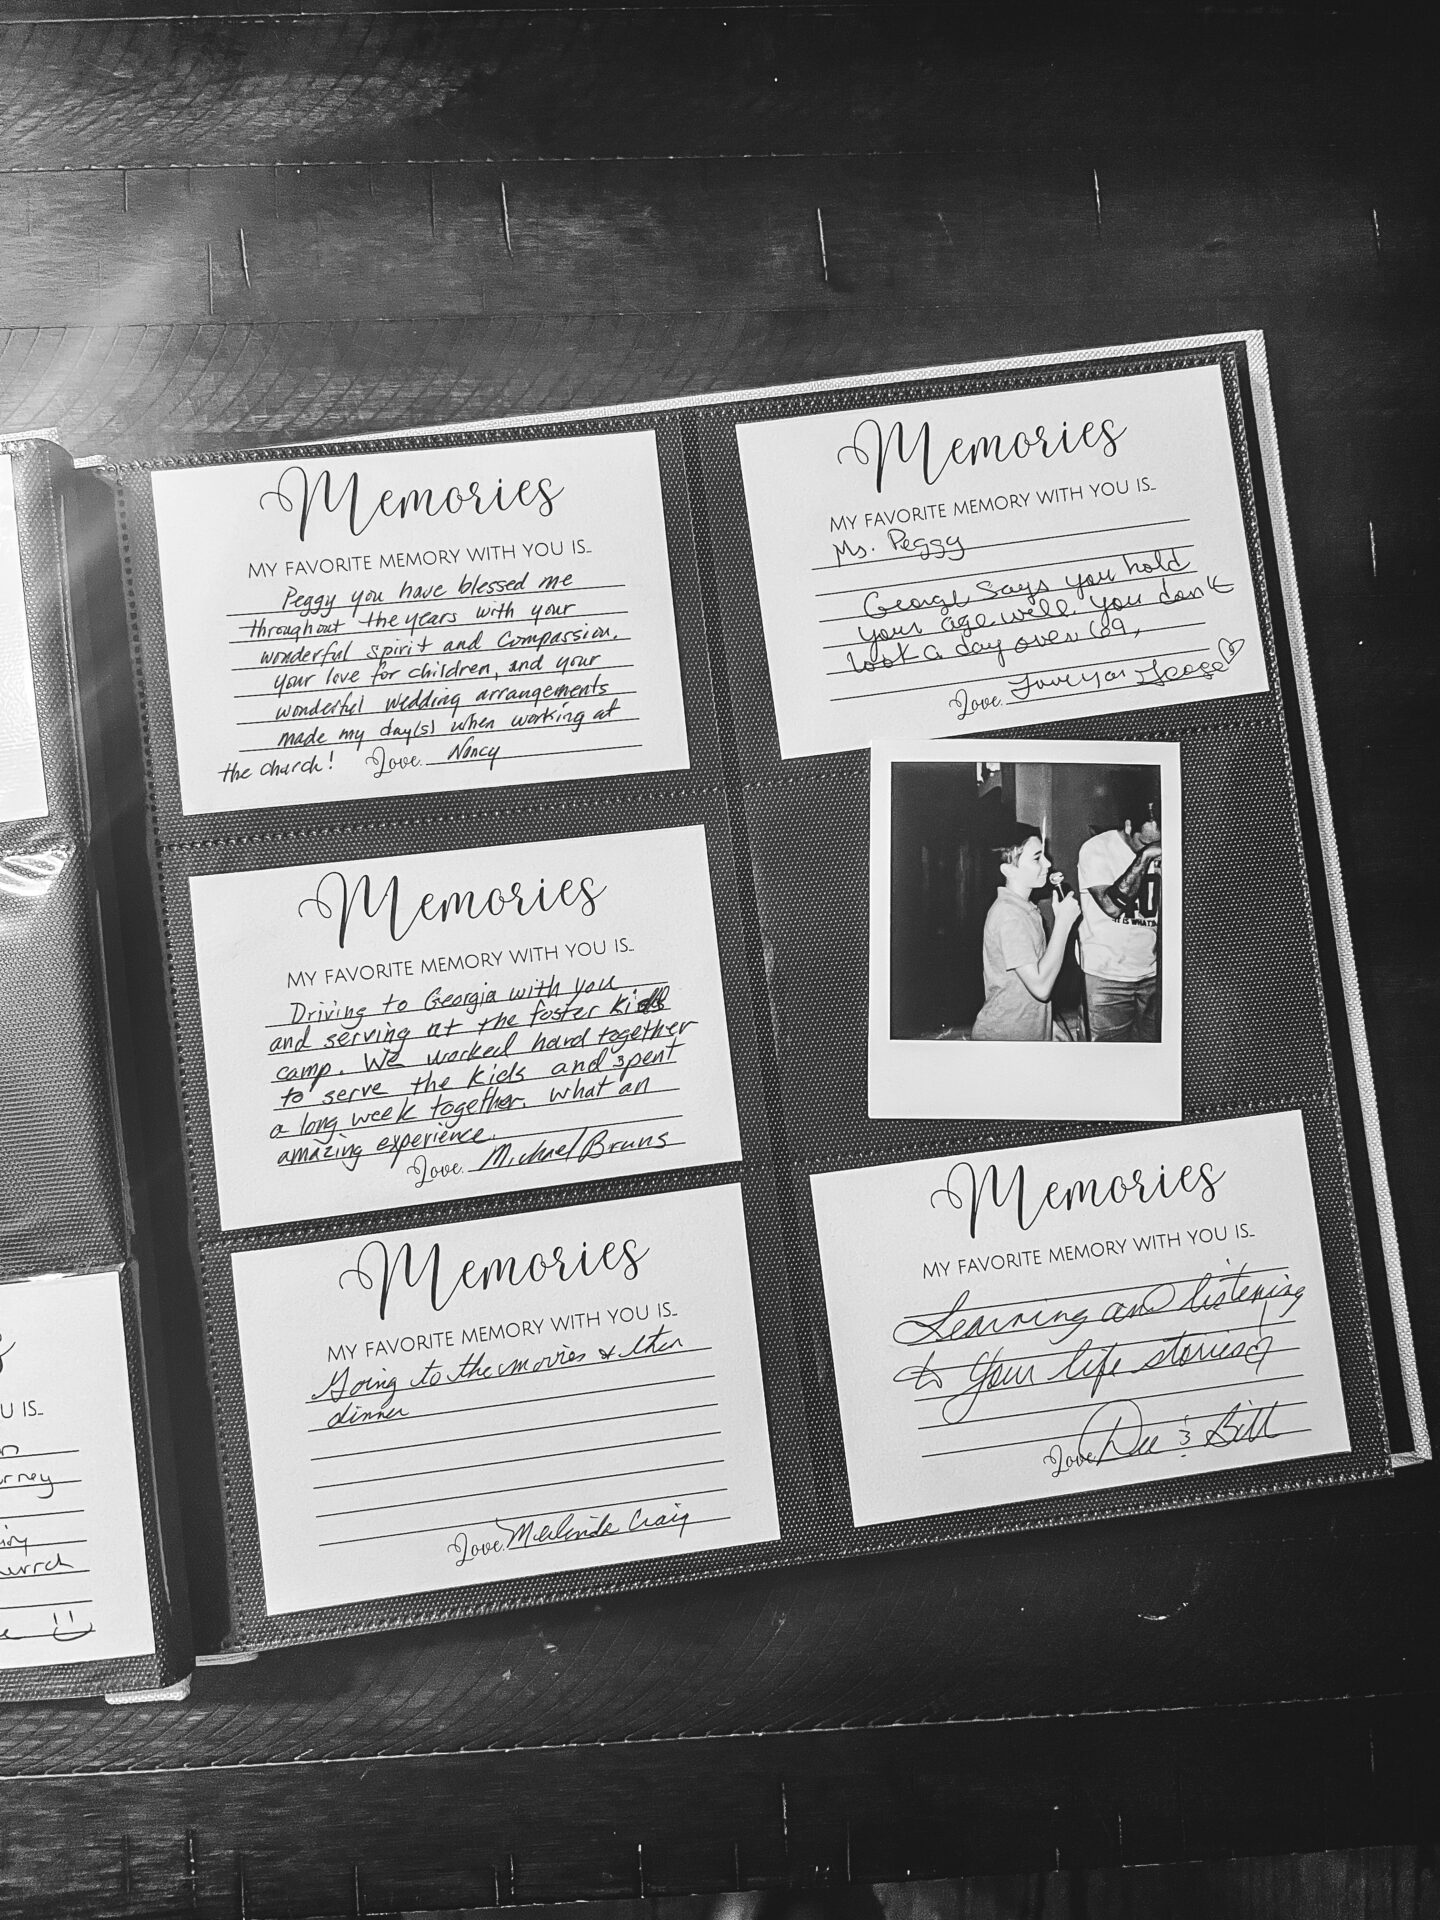 Memories
MY FAVORITE MEMORY WITH YOU IS...
Peggy you have blessed me
throughout the years with your
wonderful spirit and compassion,
your love for children, and your
wonderful wedding arrangements
made my day(s) when working at
the church! Love, Nancy
Memories
MY FAVORITE MEMORY WITH YOU IS...
Driving to Georgia with you
and serving at the foster kids
camp. We worked hard together
to serve the kids and spent
a long week together. What an
amazing experience.
Love, Michael Bruns
Memories
MY FAVORITE MEMORY WITH YOU IS...
Going to the movies & then
dinner
Love, Melinda Craig
Memories
MY FAVORITE MEMORY WITH YOU IS...
Ms. Peggy
George says you hold
your age well. You don't
look a day over 69,
Love, Love you
Memories
MY FAVORITE MEMORY WITH YOU IS...
Learning and listening
to your life stories!
Love, Dee & Bill
40
U IS...